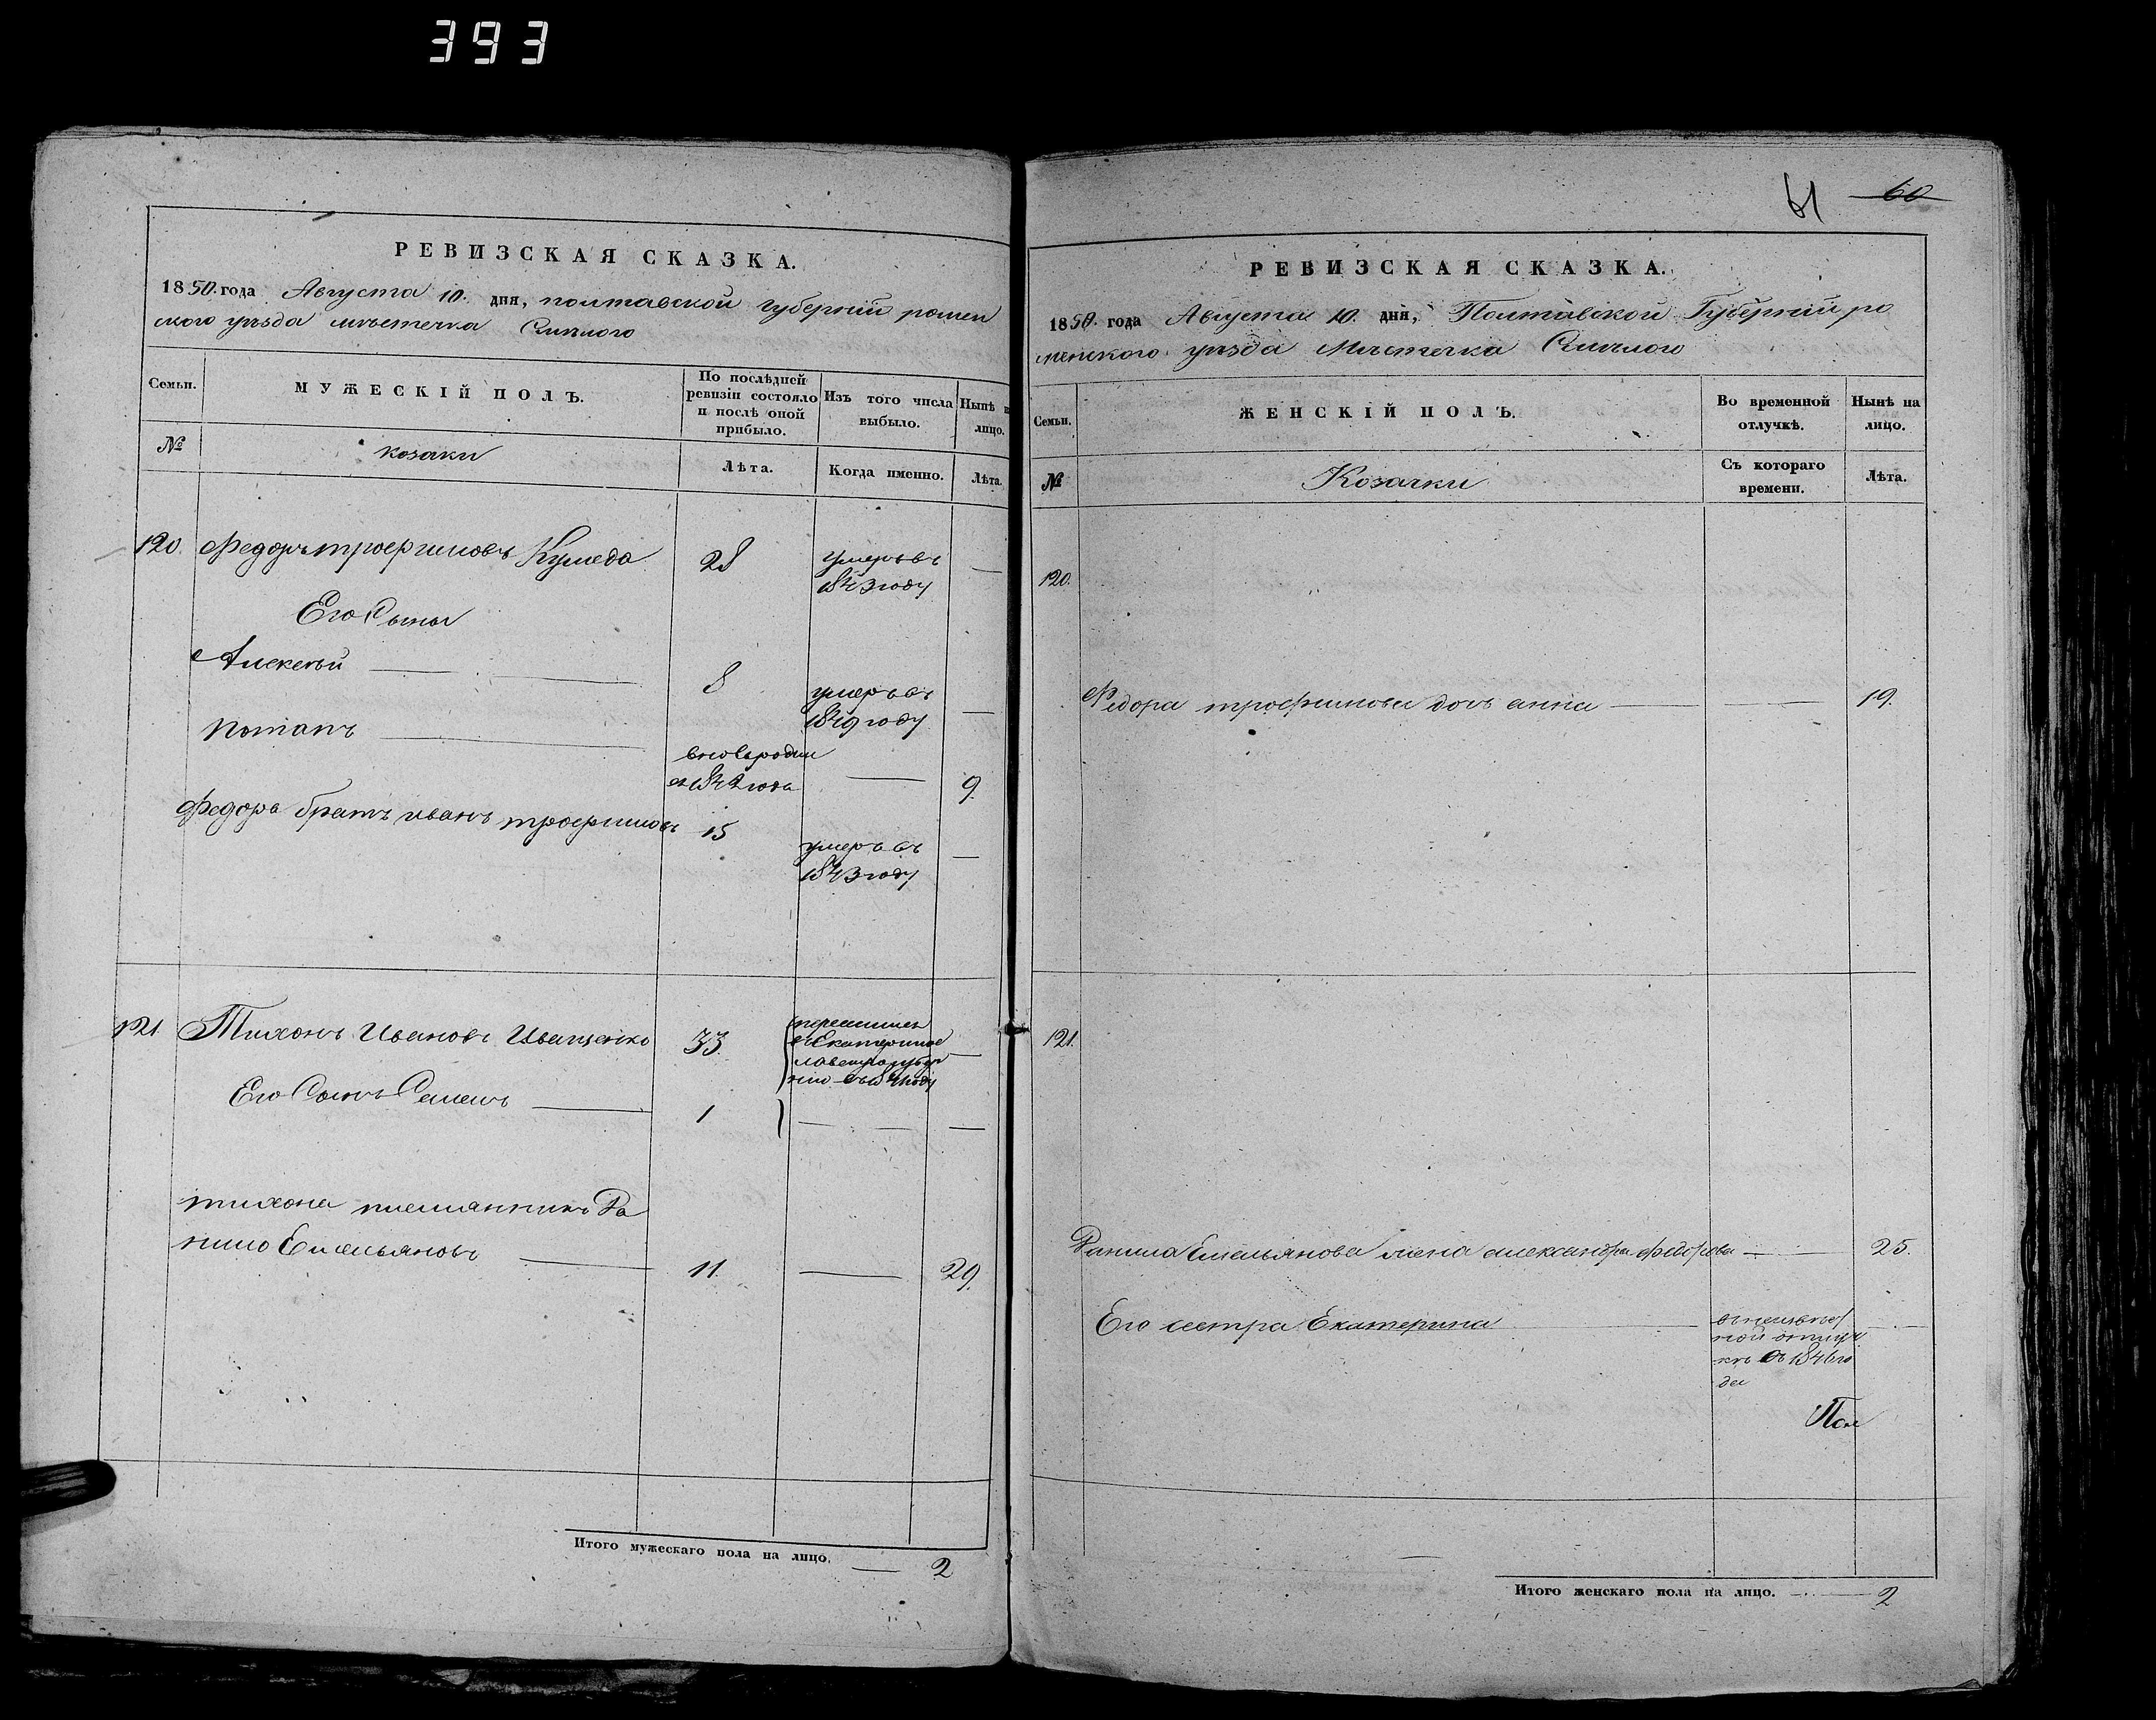 393
РЕВИЗСКАЯ СКАЗКА.
1850. года Августа 10. дня, полтавской губерніи ромен
ского уѣзда мѣстечка Смѣлого
Семьи.
МУЖЕСКІЙ ПОЛЪ.
По послѣдней ревизіи состояло и послѣ оной прибыло.
Изъ того числа выбыло.
Нынѣ на лицо.
№
козаки
Лѣта.
Когда именно.
Лѣта.
120. Федоръ трофимовъ Кумеда 28 умеръ въ
1843 году —
Его Сыны
Алексѣй — 8 умеръ въ
1849 году —
Потапъ — вновь родил
съ 1842 года — 9.
Федора братъ иванъ трофимовъ 15 умеръ въ
1843 году —
121 Тихонъ Ивановъ Иващенко 33. перечислен
въ Екатеринос
лавскую губер
нію
Его Сынъ Семенъ — 1 — —
тихона племянникъ Да
нило Емельяновъ — 11. — 29.
Итого мужескаго пола на лицо. — 2
61 60
РЕВИЗСКАЯ СКАЗКА.
1850. года Августа 10. дня, Полтавской Губерніи ро
менского уѣзда Мѣстечка Смѣлого
Семьи.
ЖЕНСКІЙ ПОЛЪ.
Во временной отлучкѣ.
Нынѣ на лицо.
№
Козачки
Съ котораго времени.
Лѣта.
120.
Федора трофимова дочь анна — — 19.
121.
Данила Емельянова жена александра федорова — 25.
Его сестра Екатерина —
ной отлуч
кѣ съ 1846 го
да —
Итого женскаго пола на лицо. — 2